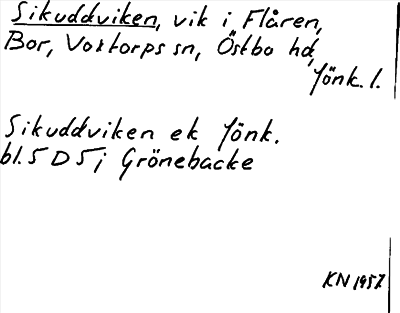 Sikuddviken, vik i Flåren,
Bor, Voxtorps sn, Östbo hd,
Jönk. l.
Sikuddviken ek Jönk.
bl. 5 D 5 j Grönebacke
KN 1957